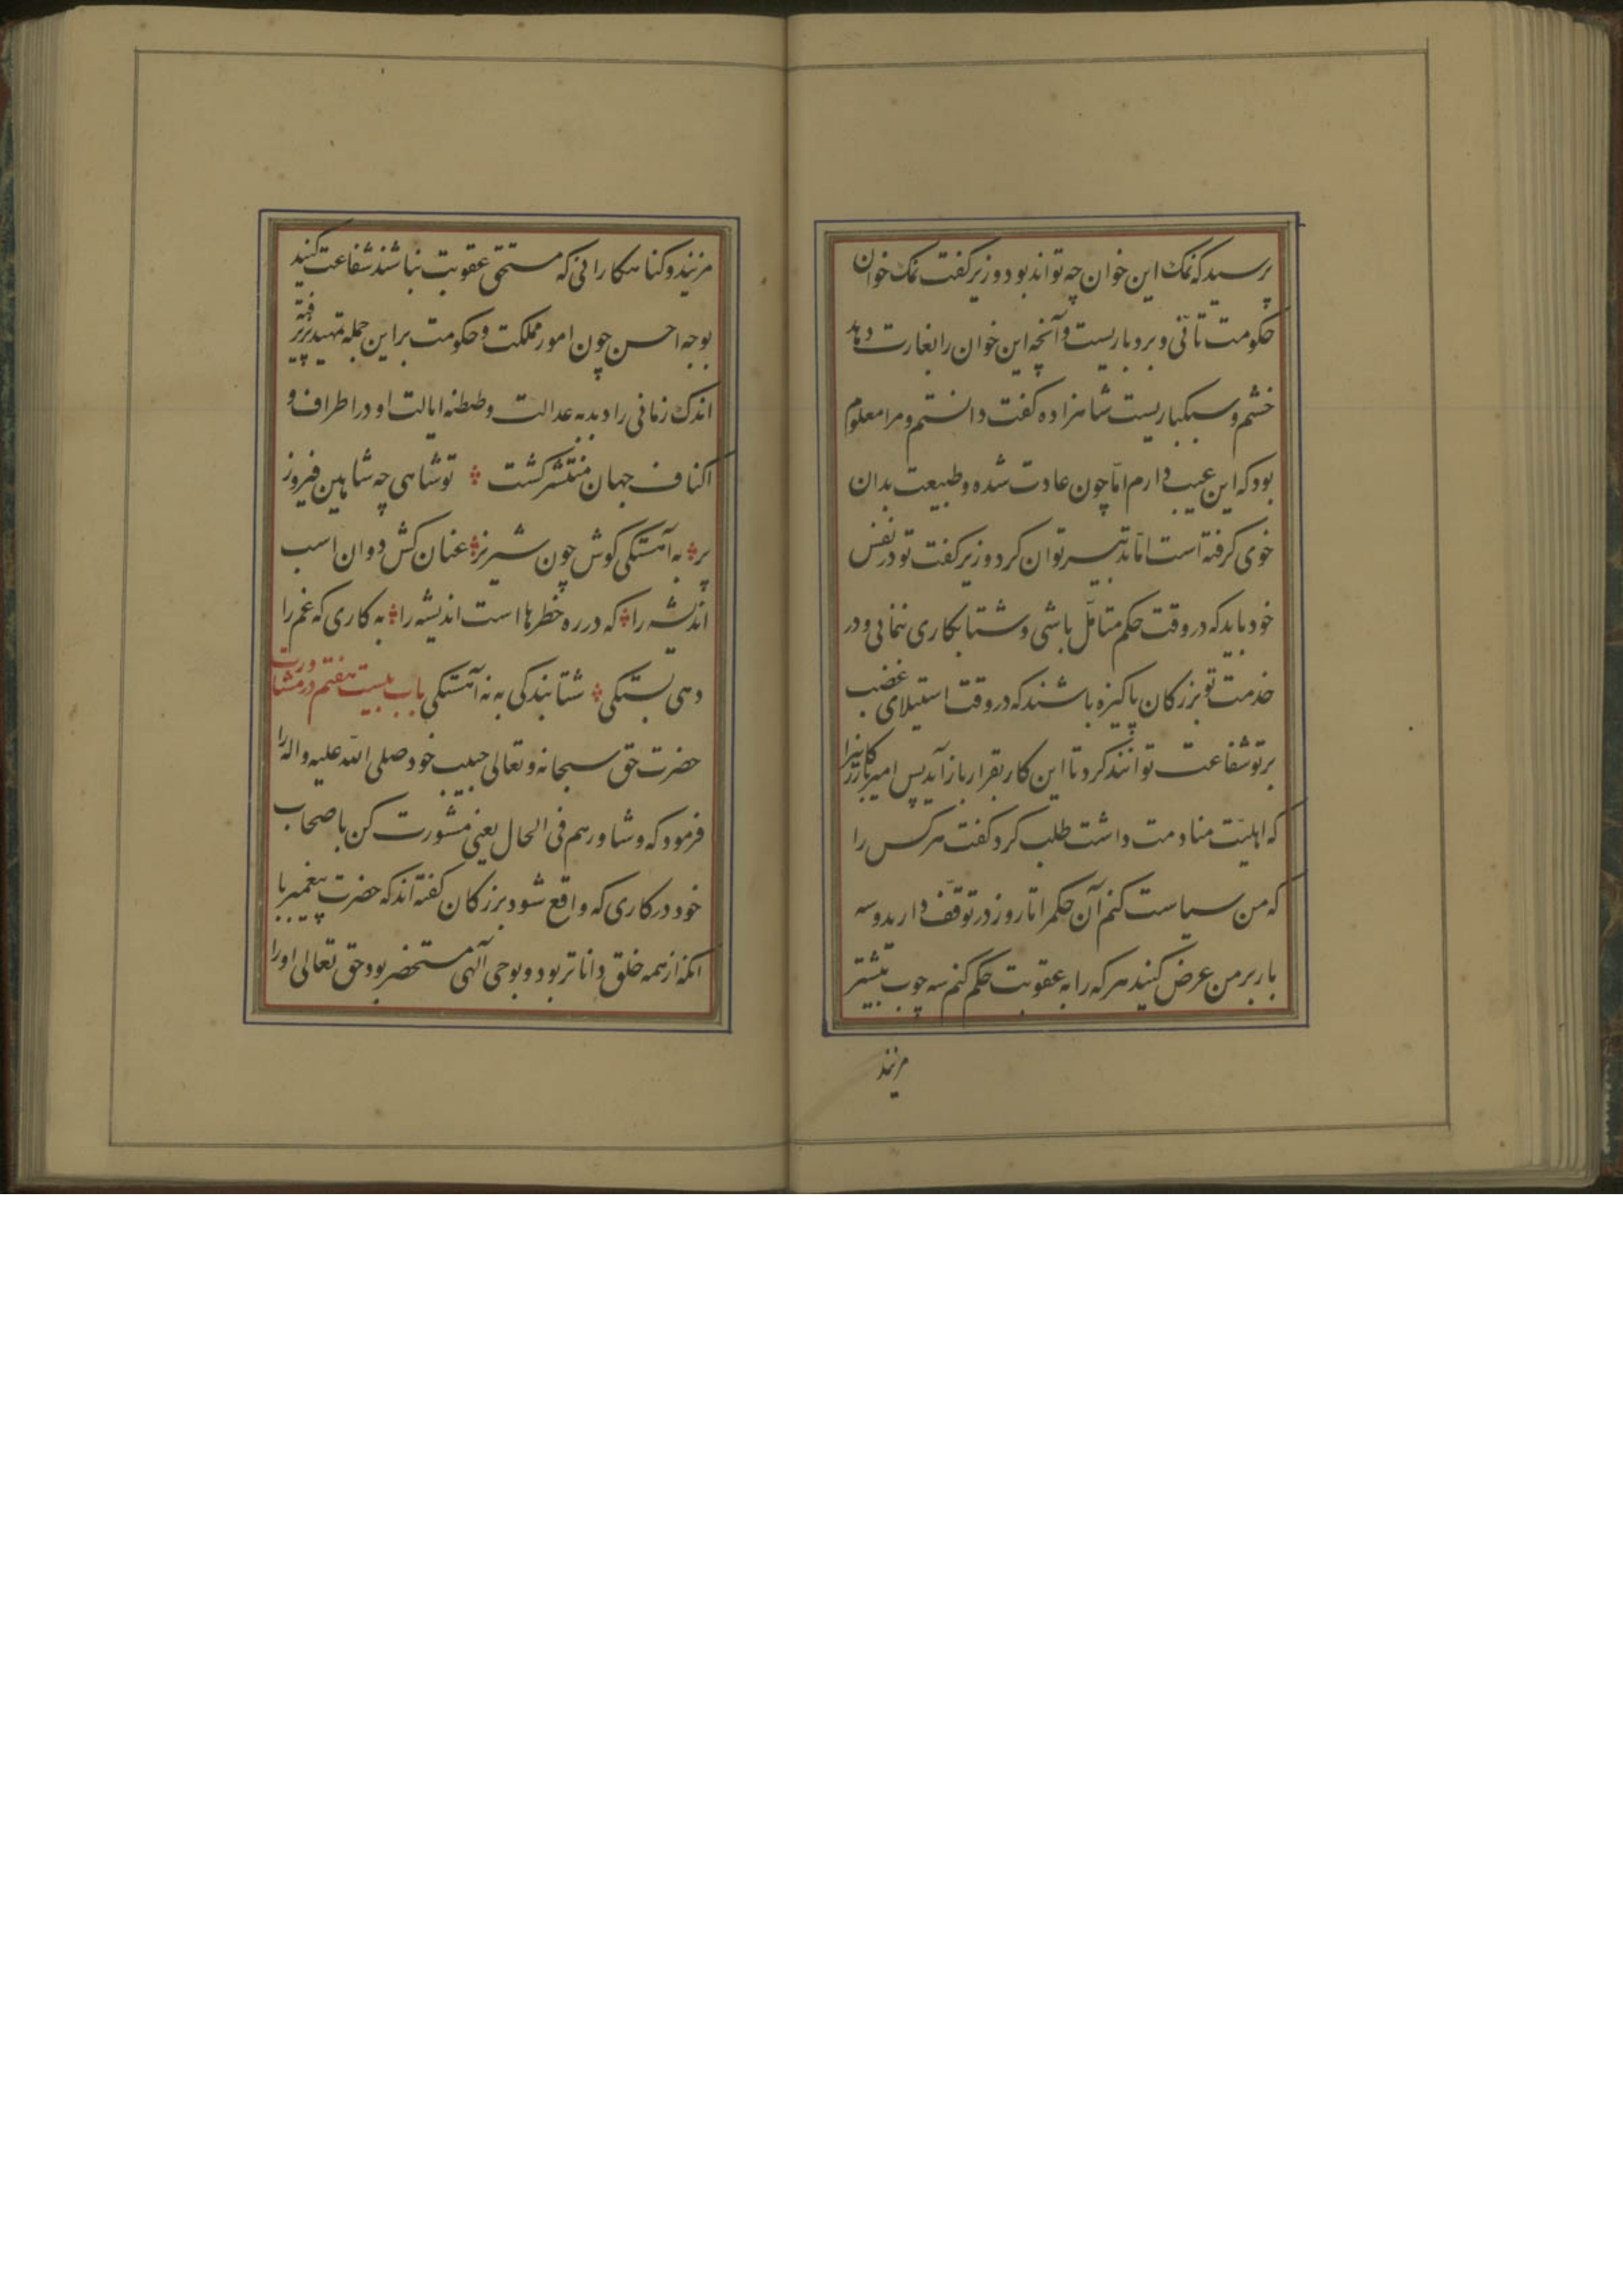 پرسید که نمک این خوان چه تواند بود وزیر کفت نمک خوان
حکومت تأنّی و بردباریست و آنچه این خوان را بغارت دهد
خشم و سبکباریست شاهزاده کفت دانستم و مرا معلوم
بود که این عیب دارم امّا چون عادت شده و طبیعت بدان
خوی کرفته است امّا تدبیر توان کرد وزیر کفت تو در نفس
خود باید که در وقت حکم متامّل باشی و شتابکاری ننمائی و در
خدمت تو بزرکان پاکیزه باشند که در وقت استیلای غضب
بر تو شفاعت توانند کرد تا این کار بقرار باز آید پس امیر بازرکانیرا
که اهلیّت منادمت داشت طلب کرد کفت هر کس را
که من سیاست کنم آن حکمرا تا روز در توقّف دارید و سه
بار بر من عرض کنید هر که را به عقوبت حکم کنم سه چوب بیشتر
مزنید
مزنید و کناهکارانی که مستحق عقوبت نباشند شفاعت کنید
بوجه احسن چون امور مملکت و حکومت بر این جمله تمهید پذیرفته
اندک زمانی را دبدبه عدالت و طنطنه ایالت او در اطراف و
اکناف جهان منتشر کشت تو شاهی چه شاهین فیروز
پر به آهستکی کوش چون شیر نر عنان کش دوان اسب
اندیشه را که در ره خطرها است اندیشه را به کاری که غم را
دهی بستکی شتابندکی به نه آهستکی باب بیست هفتم در مشاورت
حضرت حق سبحانه و تعالی حبیب خود صلی الله علیه و اله را
فرمود که و شاورهم فی الحال یعنی مشورت کن با صحاب
خود در کاری که واقع شود بزرکان کفته اند که حضرت پیغمبر با
انکه از همه خلق داناتر بود و بوحی آلهی مستحضر بود حق تعالی او را